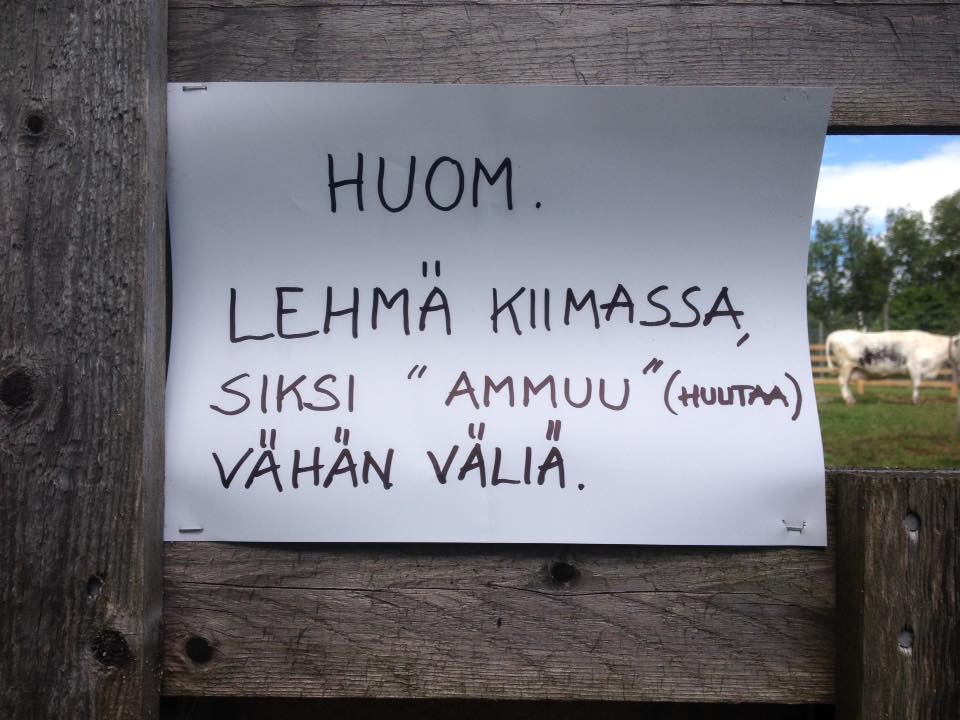 HUOM.
LEHMÄ KIIMASSA,
SIKSI "AMMUU" (HUUTAA)
VÄHÄN VÄLIÄ.